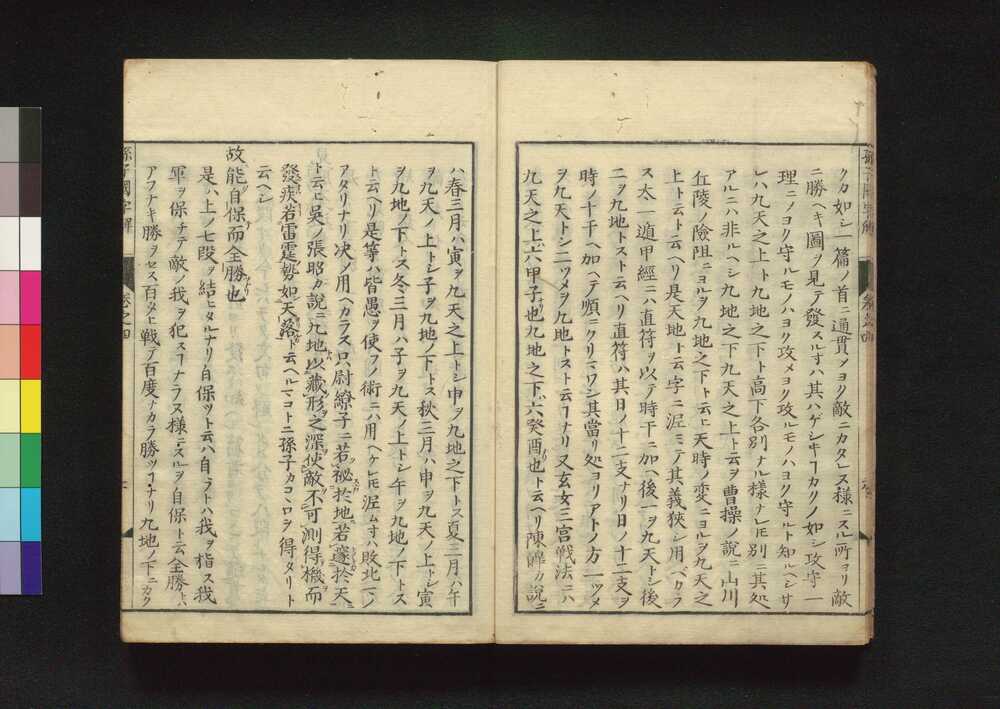 クカ如シ一篇ノ首ニ通貫ノヨク敵ニカタレス様ニスル所ヨリ敵
ニ勝ヘキ圖ヲ見テ發スルヿハ其ハゲシキヿカクノ如シ攻守一
理ニノヨク守ルモノハヨク攻メヨク攻ルモノハヨク守ルト知ルヘシサ
レハ九天之上ト九地之下ト高下各別ナル様ナレ𪜈別ニ其処
アルニハ非ルヘシ九地之下九天之上ト云ヲ曹操ノ説ニ山川
丘陵ノ險阻ニヨルヲ九地之下ト云ヒ天時ノ変ニヨルヲ九天之
上ト云ト云ヘリ是天地ト云字ニ泥ミテ其義狹シ用ヘカラ
ス太一遁甲經ニハ直符ヲ以テ時干ニ加ヘ後一ヲ九天トシ後
二ヲ九地トストエヘリ直符ハ其日ノ十二支ナリ日ノ十二支ヲ
時ノ十干ヘ加ヘテ順ニクリマワシ其當リ処ヨリアトノ方一ツメ
ヲ九天トシ二ツメヲ九地トスト云ヿナリ又玄女三宮戦法ニハ
九天之上六甲子也九地之下六癸酉也ト云ヘリ陳皥カ説ニ
ハ春三月ハ寅ヲ九天之上トシ申ヲ九地之下トス夏三月ハ午
ヲ九天ノ上トシ子ヲ九地ノ下トス秋三月ハ申ヲ九天ノ上トシ寅
ヲ九地ノ下トス冬三月ハ子ヲ九天ノ上トシ午ヲ九地ノ下トス
ト云ヘリ是等ハ皆愚ヲ使フノ術ニハ用ヘケレ𪜈泥ムヿハ敗北ノ
アタリナリ決ノ用ヘカラス只尉繚子ニ若祕於地若邃於天
ト云ヒ呉ノ張昭カ説ニ九地以藏形之深使敵不可測得機而
發疾若雷霆勢如天落ト云ヘルマコトニ孫子カコヽロヲ得タリト
云ヘシ
故能自保而全勝也
是ハ上ノ七段ヲ結ヒタルナリ自保ツト云ハ自ラトハ我ヲ指ス我
軍ヲ保チテ敵ノ我ヲ犯スヿナラヌ様ニスルヲ自保ト云全勝トハ
アフナキ勝ヲセス百タヒ戦テ百度ナカラ勝ツヿナリ九地ノ下ニカク
孫子國字解
卷之四